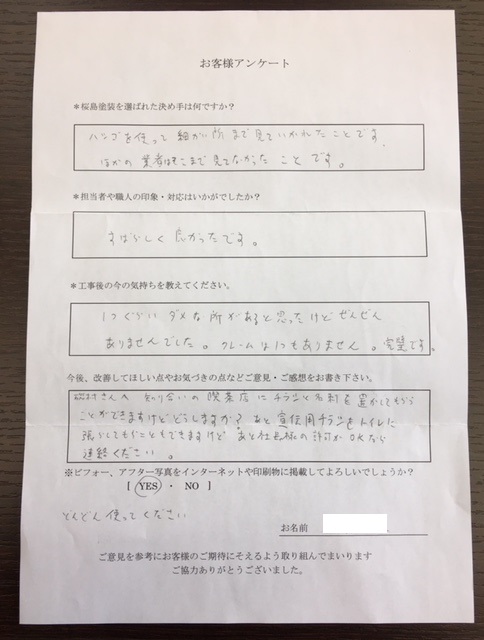 お客様アンケート
*桜島塗装を選ばれた決め手は何ですか？
ハシゴを使って細かい所まで見ていかれたことです。
ほかの業者はそこまで見てなかったことです。
*担当者や職人の印象・対応はいかがでしたか？
すばらしく良かったです。
*工事後の今の気持ちを教えてください。
1つぐらいダメな所があると思ったけどぜんぜん
ありませんでした。クレームは1つもありません。完璧です。
今後、改善してほしい点やお気づきの点などご意見・ご感想をお書き下さい。
さんへ 知り合いの喫茶店にチラシと名刺を置かしてもらう
ことができますけどどうしますか？あと宣伝用チラシをトイレに
張らしてもらこともできますけど あと社長様の許可がOKなら
連絡ください。
※ビフォー、アフター写真をインターネットや印刷物に掲載してよろしいでしょうか？
[ YES ・ NO ]
どんどん使ってください
お名前
ご意見を参考にお客様のご期待にそえるよう取り組んでまいります
ご協力ありがとうございました。